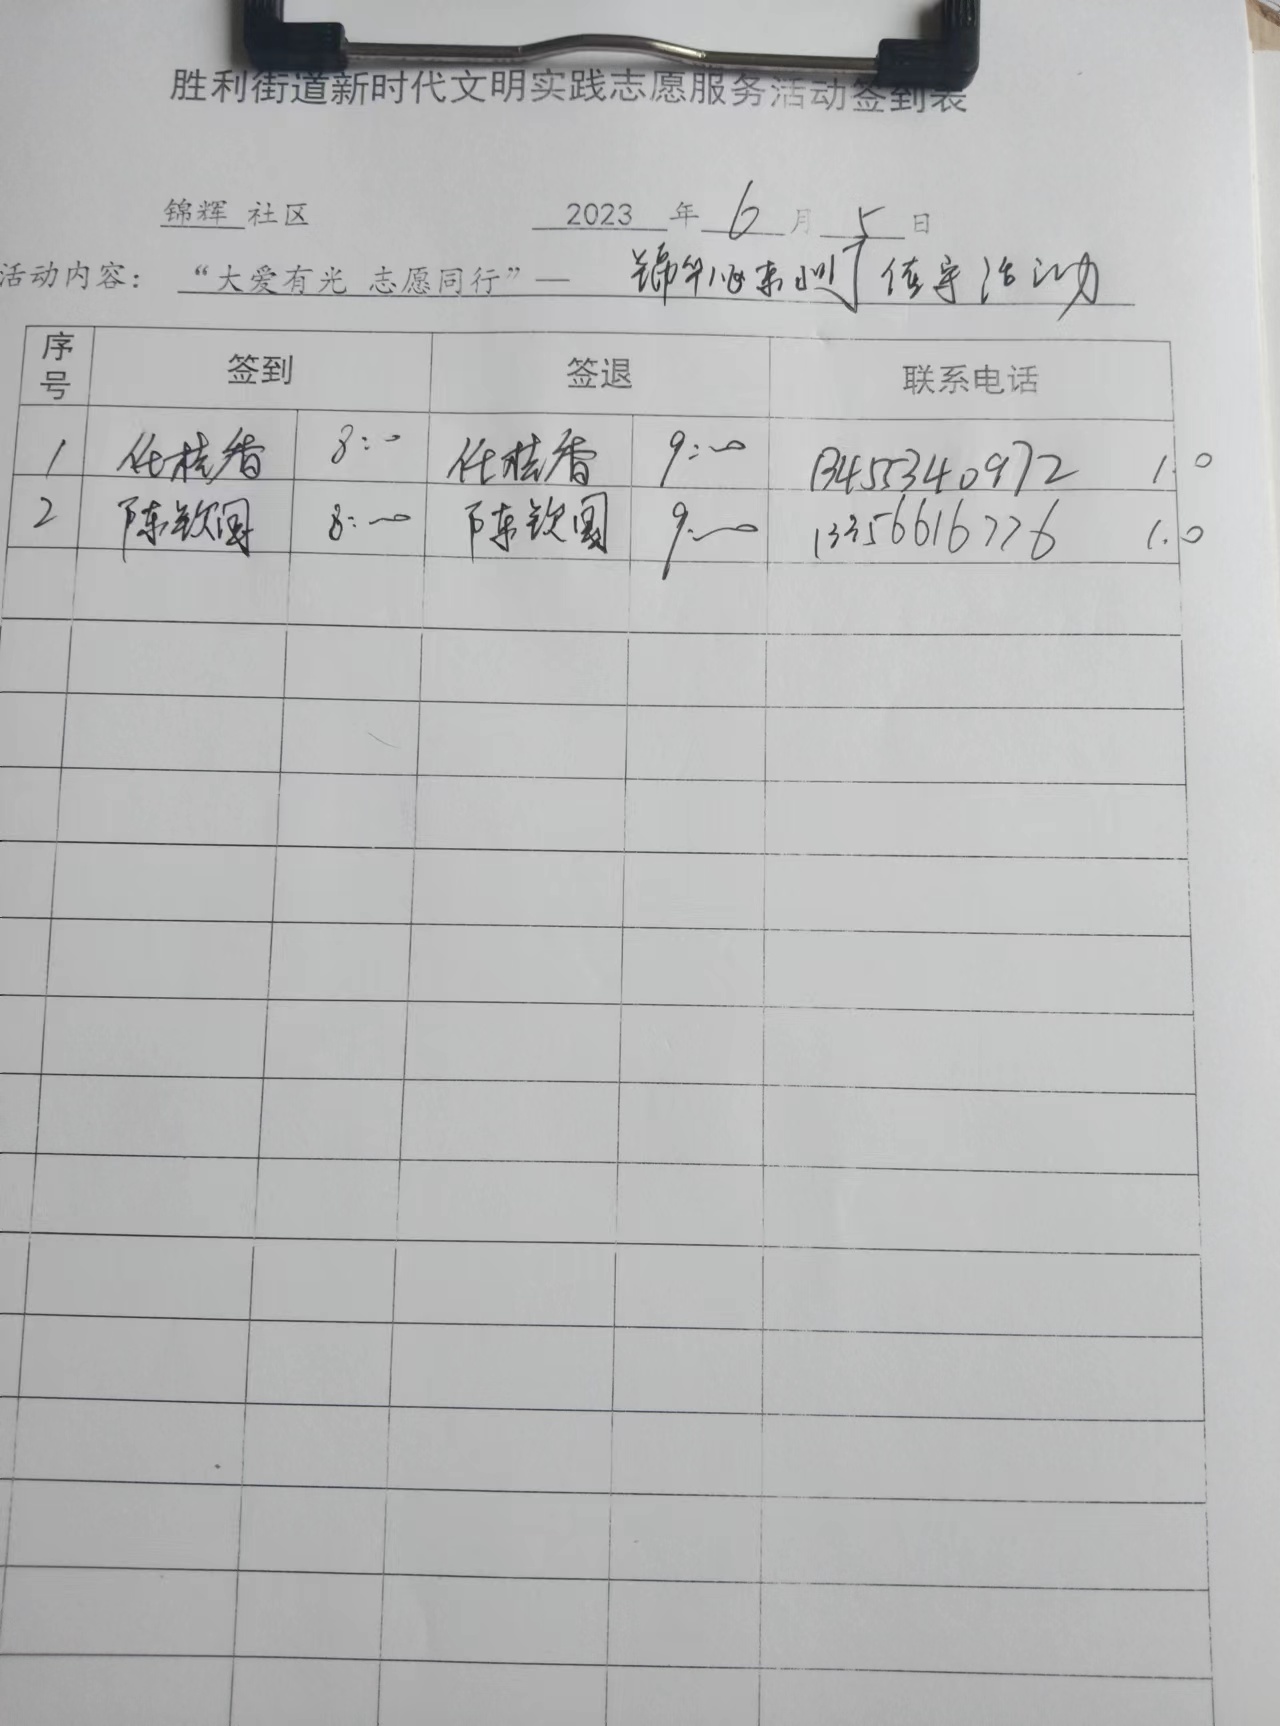 胜利街道新时代文明实践志愿服务活动签到表
锦辉 社区 2023 年 6 月 5 日
活动内容： “大爱有光 志愿同行”— 活动
序号 签到 签退 联系电话
1 任桂香 8:00 任桂香 9:00 13455340972 1.0
2 陈钦国 8:00 陈钦国 9:00 13356616776 1.0